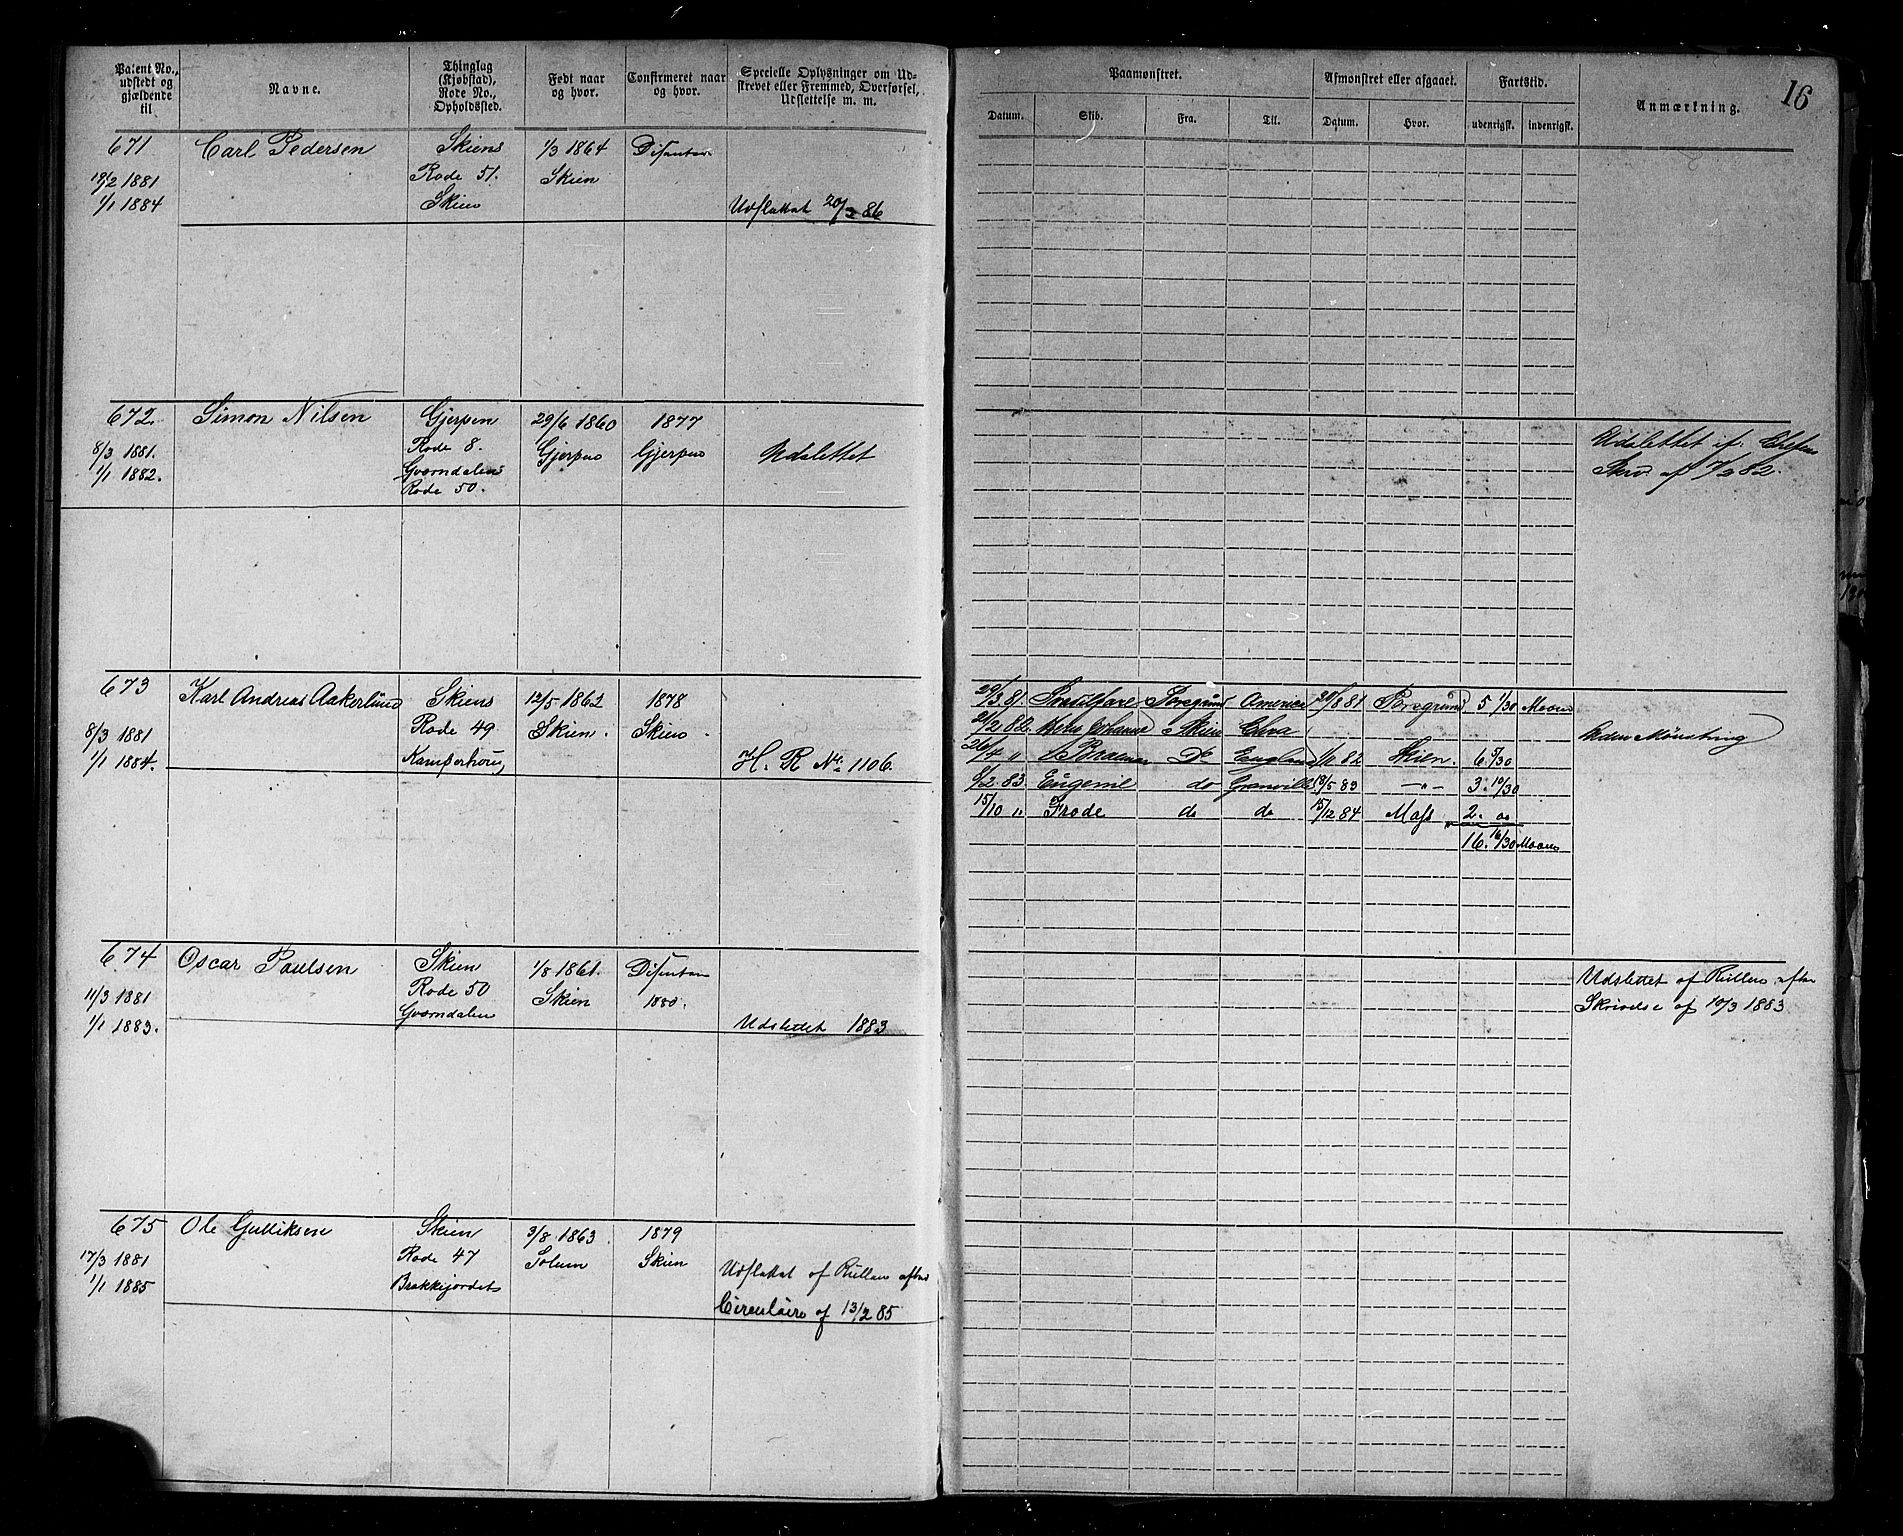 Patent No., udstedt og gjældende til
Navne.
Thinglag (Kjøbstad), Rode No., Opholdssted.
Født naar og hvor.
Confirmeret naar og hvor.
Specielle Oplysninger om Udskrevet eller Fremmed, Overførsel, Udslettelse m. m.
Paamønstret.
Afmønstret eller afgaaet.
Fartstid.
Anmærkning.
16
Datum.
Skib.
Fra.
Til.
Datum.
Hvor.
udenrigsk.
indenrigsk.
671 Carl Pedersen Skiens 1/3 1864
18/2 1881 Rode 51. Skien
1/1 1884 Skien 86
672. Simon Nilsen Gjerpen 29/6 1860 1877
8/3 1881. Rode 8. Gjerpen Gjerpen Udslettet
1/1 1882. Rode 50.
Udslettet
Skr. af 82.
673 Karl Andreas Aakerlund Skiens 12/5 1862 1878
8/3 1881 Rode 49 Skien. Skien
1/1 1884. H. R No. 1106.
29/3 81 America 81 Porsgrund 5 1/30
82 Skien
Uden Mønstring
26/4 " Do England 82 Skien. 6 5/30
83. Eugenie do Granville 18/5 83 — " — 3. 11/30
15/10 " Frode do do 15/12 84 2. 00
16. 16/30
674 Oscar Paulsen Skien 1/8 1861.
11/3 1881 Rode 50 Skien 1880.
1/1 1883. Udslettet 1883
Udslettet af Rullen efter
Skrivelse af 10/3 1883
675 Ole Gulliksen Skien 3/8 1863. 1879
17/3 1881 Rode 47 Solum Skien
1/1 1885 Brekkejordet
af Rullen efter
Circulære af 13/2 85